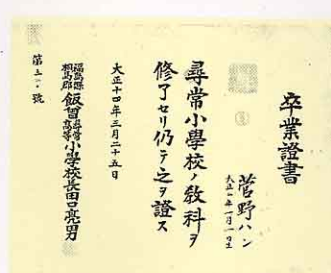 卒業證書
菅野ハン
大正一年一月一日生
尋常小學校ノ教科ヲ
修了セリ仍テ之ヲ證ス
大正十四年三月二十五日
福島縣相馬郡飯曽尋常高等小學校長田口亮男
第三一號